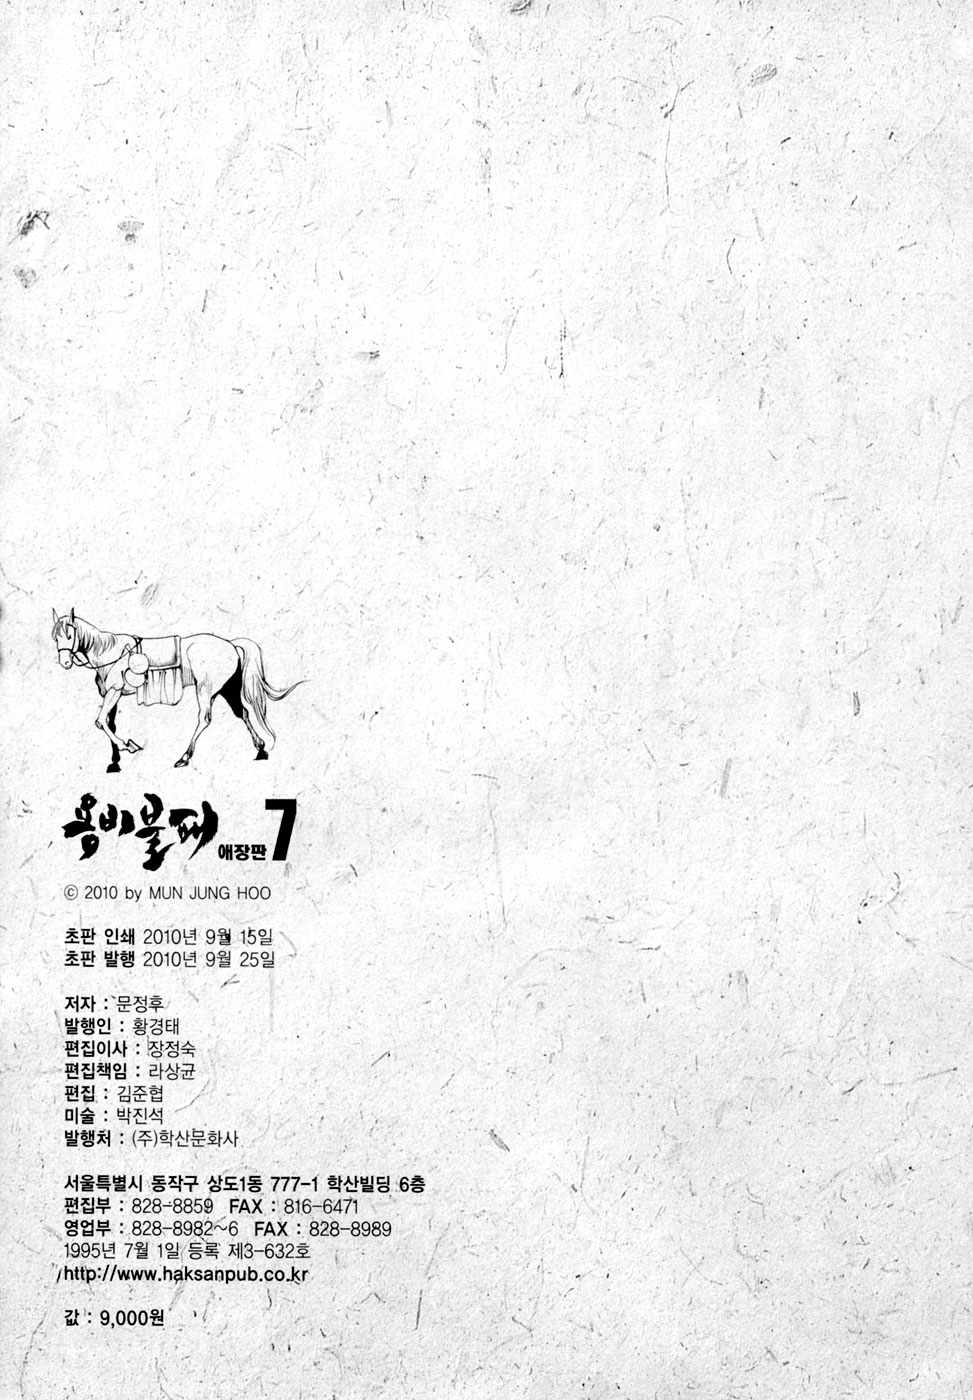 용비불패 애장판 7
ⓒ 2010 by MUN JUNG HOO
초판 인쇄 2010년 9월 15일
초판 발행 2010년 9월 25일
저자 : 문정후
발행인 : 황경태
편집이사 : 장정숙
편집책임 : 라상균
편집 : 김준협
미술 : 박진석
발행처 : (주)학산문화사
서울특별시 동작구 상도1동 777-1 학산빌딩 6층
편집부 : 828-8859 FAX : 816-6471
영업부 : 828-8982~6 FAX : 828-8989
1995년 7월 1일 등록 제3-632호
http://www.haksanpub.co.kr
값 : 9,000원